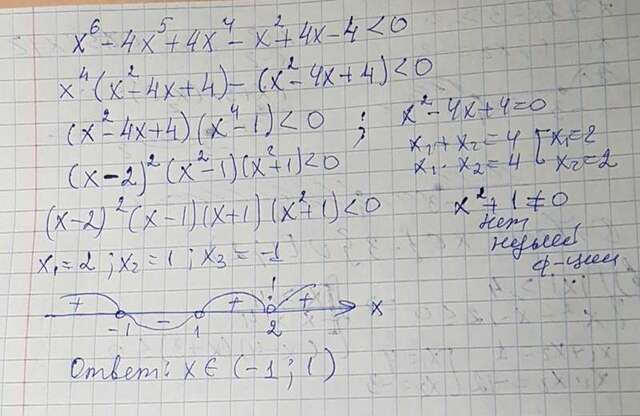 x⁶ - 4x⁵ + 4x⁴ - x² + 4x - 4 < 0
x⁴(x² - 4x + 4) - (x² - 4x + 4) < 0
(x² - 4x + 4)(x⁴ - 1) < 0 ; x² - 4x + 4 = 0
x₁ + x₂ = 4 [ x₁ = 2
(x - 2)²(x² - 1)(x² + 1) < 0 x₁ · x₂ = 4 x₂ = 2
(x - 2)²(x - 1)(x + 1)(x² + 1) < 0 x² + 1 ≠ 0
нет
нулей
ф-ции
x₁ = 2 ; x₂ = 1 ; x₃ = -1
+ - + + x
-1 1 2
Ответ: x ∈ (-1 ; 1)